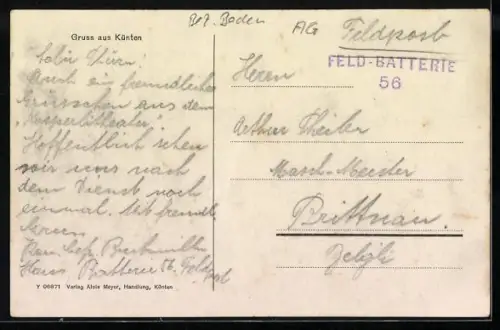 Bez. Baden
AG
Gruss aus Künten
Feldpost
FELD-BATTERIE
56
Herrn
Auch ein freundliches
Grüsschen aus dem
"Kasperlitheater".
Hoffentlich sehen
wir uns nach
dem Dienst noch
einmal. Mit freundl.
Gruss
Hans Batterie 56 Feldpost
Arthur Theiler
Masch-Meister
Brittnau.
Zelgli
Y 06671 Verlag Alois Meyer, Handlung, Künten